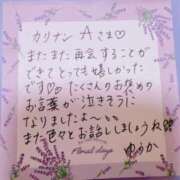 カリナン Aさま♡
またまた再会することが
できてとっても嬉しかった
です♡♡たくさんのお褒めの
お言葉が泣きそうに
なりましたよ〜
また色々とお話ししましょうね♡
Floral days
ゆうか